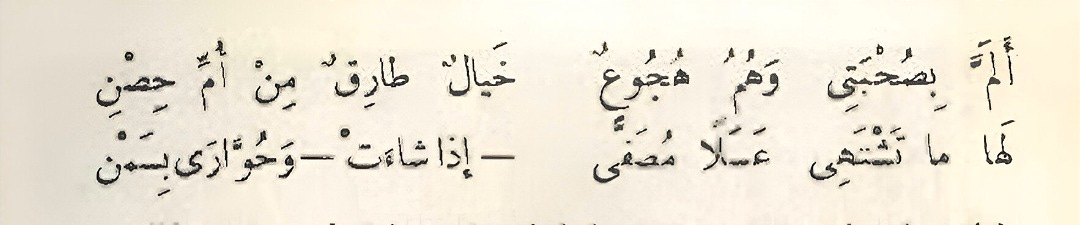 أَلَمَّ بِصُحْبَتِى وَهُمُ هُجُوعٌ خَيالٌ طارِقٌ مِنْ أُمِّ حِصْنِ
لَها ما تَشْتَهِى عَسَلًا مُصَفًّى — إذا شاءَتْ — وَحُوَّارَى بِسَمْنِ